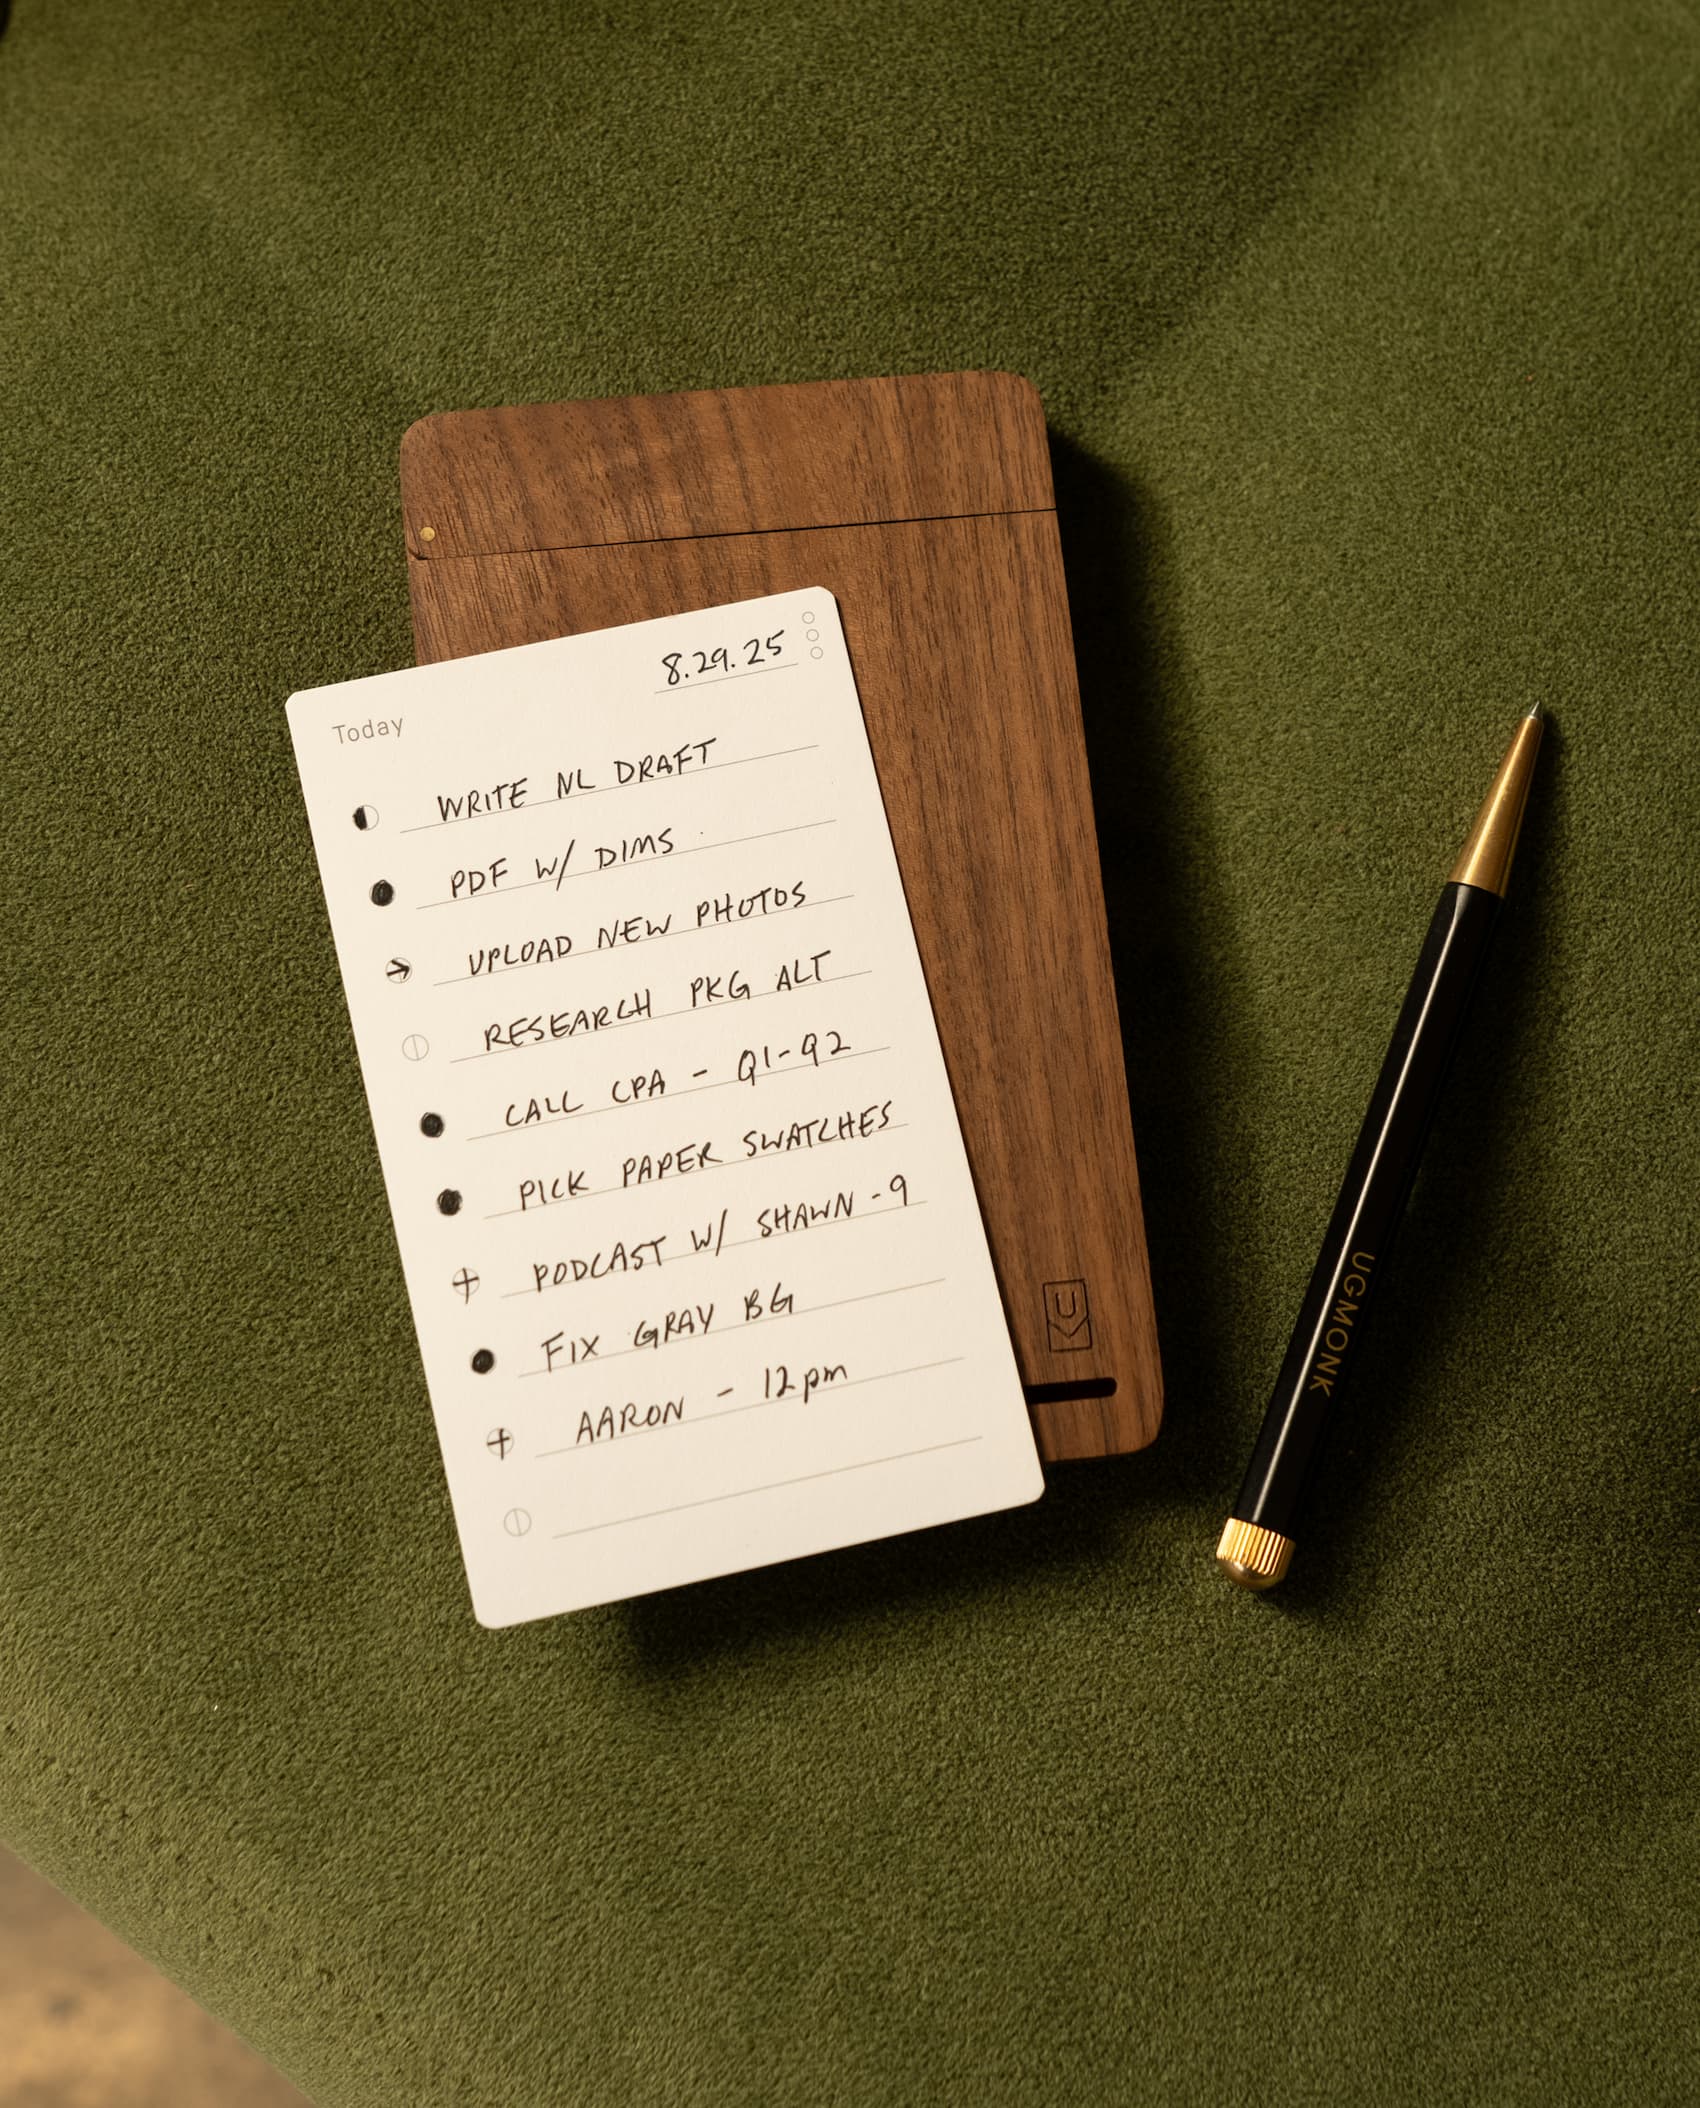 8.29.25
Today
WRITE NL DRAFT
PDF W/ DIMS
UPLOAD NEW PHOTOS
RESEARCH PKG ALT
CALL CPA - Q1-Q2
PICK PAPER SWATCHES
PODCAST W/ SHAWN - 9
FIX GRAY BG
AARON - 12pm
U
UGMONK